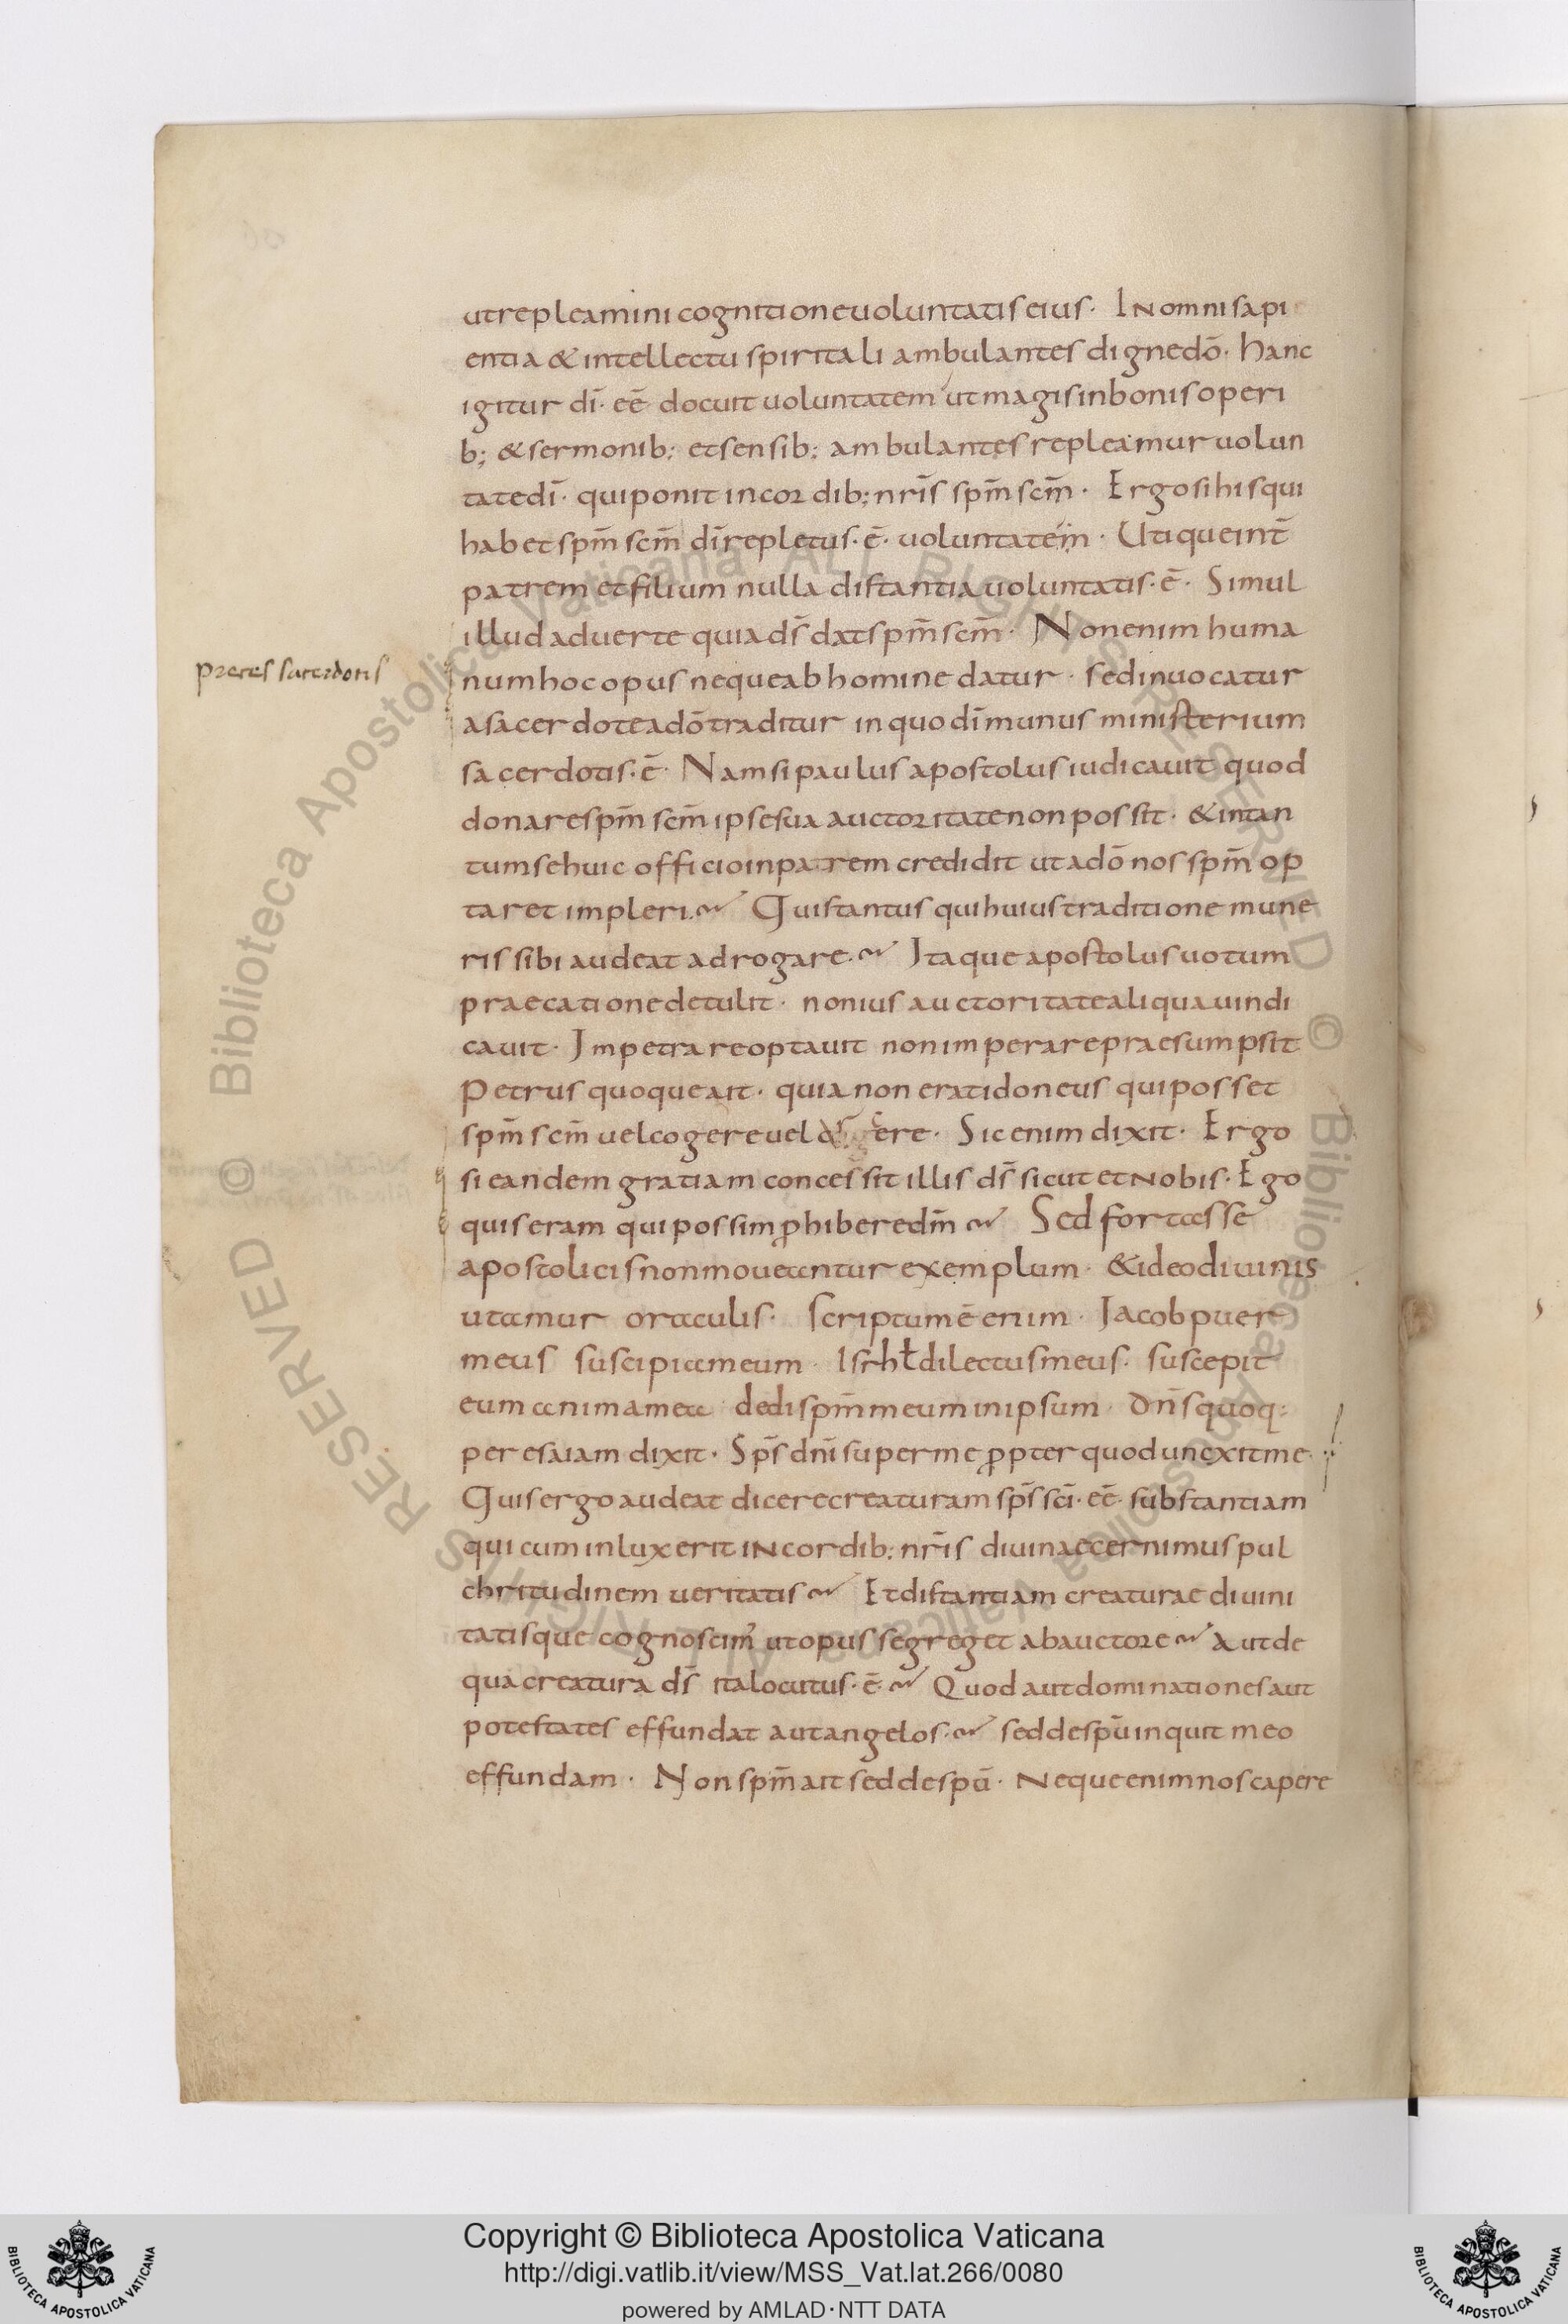 ut repleamini cognitione uoluntatis eius· IN omni sapi
entia & intellectu spiritali ambulantes digne dō· hanc
igitur dī· eē docuit uoluntatem ut magis in bonis operi
b; & sermonib; et sensib; ambulantes repleamur uolun
tate dī· qui ponit in cordib; nrīs spm̄ scm̄· Ergo si his qui
habet spm̄ scm̄ dī repletus·ē· uoluntatem· Utique int̄
patrem et filium nulla distantia uoluntatis·ē· Simul
illud aduerte quia ds̄ dat spm̄ scm̄· Non enim huma
preces sacerdotis
num hoc opus neque ab homine datur· sed inuocatur
a sacerdote a dō traditur in quo dī munus ministerium
sacerdotis·ē· Nam si paulus apostolus iudicauit quod
donare spm̄ scm̄ ipse sua auctoritate non possit· & in tan
tum se huic officio inparem credidit ut a dō nos spm̄ op
taret impleri· Quis tantus qui huius traditione mune
ris sibi audeat adrogare· Itaque apostolus uotum
praecatione detulit· non ius auctoritate aliqua uindi
cauit· Impetrare optauit non imperare praesumpsit
Petrus quoque ait· quia non erat idoneus qui posset
spm̄ scm̄ uel cogere uel ere· Sic enim dixit· Ergo
si eandem gratiam concessit illis ds̄ sicut et nobis· Ego
quis eram qui possim phibere dm̄ Sed fortasse
apostolicis non moueantur exemplum· & ideo diuinis
utamur oraculis· Scriptum ē enim· Jacob puer
meus suscipiam eum· Isrhł dilectus meus· suscepit
eum anima mea dedi spm̄ meum in ipsum Dn̄s quoq;
per esaiam dixit· Sps̄ dnī super me ppter quod unexit me·
Quis ergo audeat dicere creaturam sps̄ scī· eē· substantiam
qui cum inluxerit IN cordib; nrīs diuinae cernimus pul
chritudinem ueritatis Et distantiam creaturae diuini
tatisque cognoscim' ut opus segreget ab auctore Aut de
qua creatura ds̄ ita locutus·ē· Quod aut dominationes aut
potestates effundat aut angelos· sed de spū inquit meo
effundam· Non spm̄ ait sed de spū· Neque enim nos capere
Copyright © Biblioteca Apostolica Vaticana
http://digi.vatlib.it/view/MSS_Vat.lat.266/0080
powered by AMLAD·NTT DATA
BIBLIOTECA APOSTOLICA VATICANA
BIBLIOTECA APOSTOLICA VATICANA